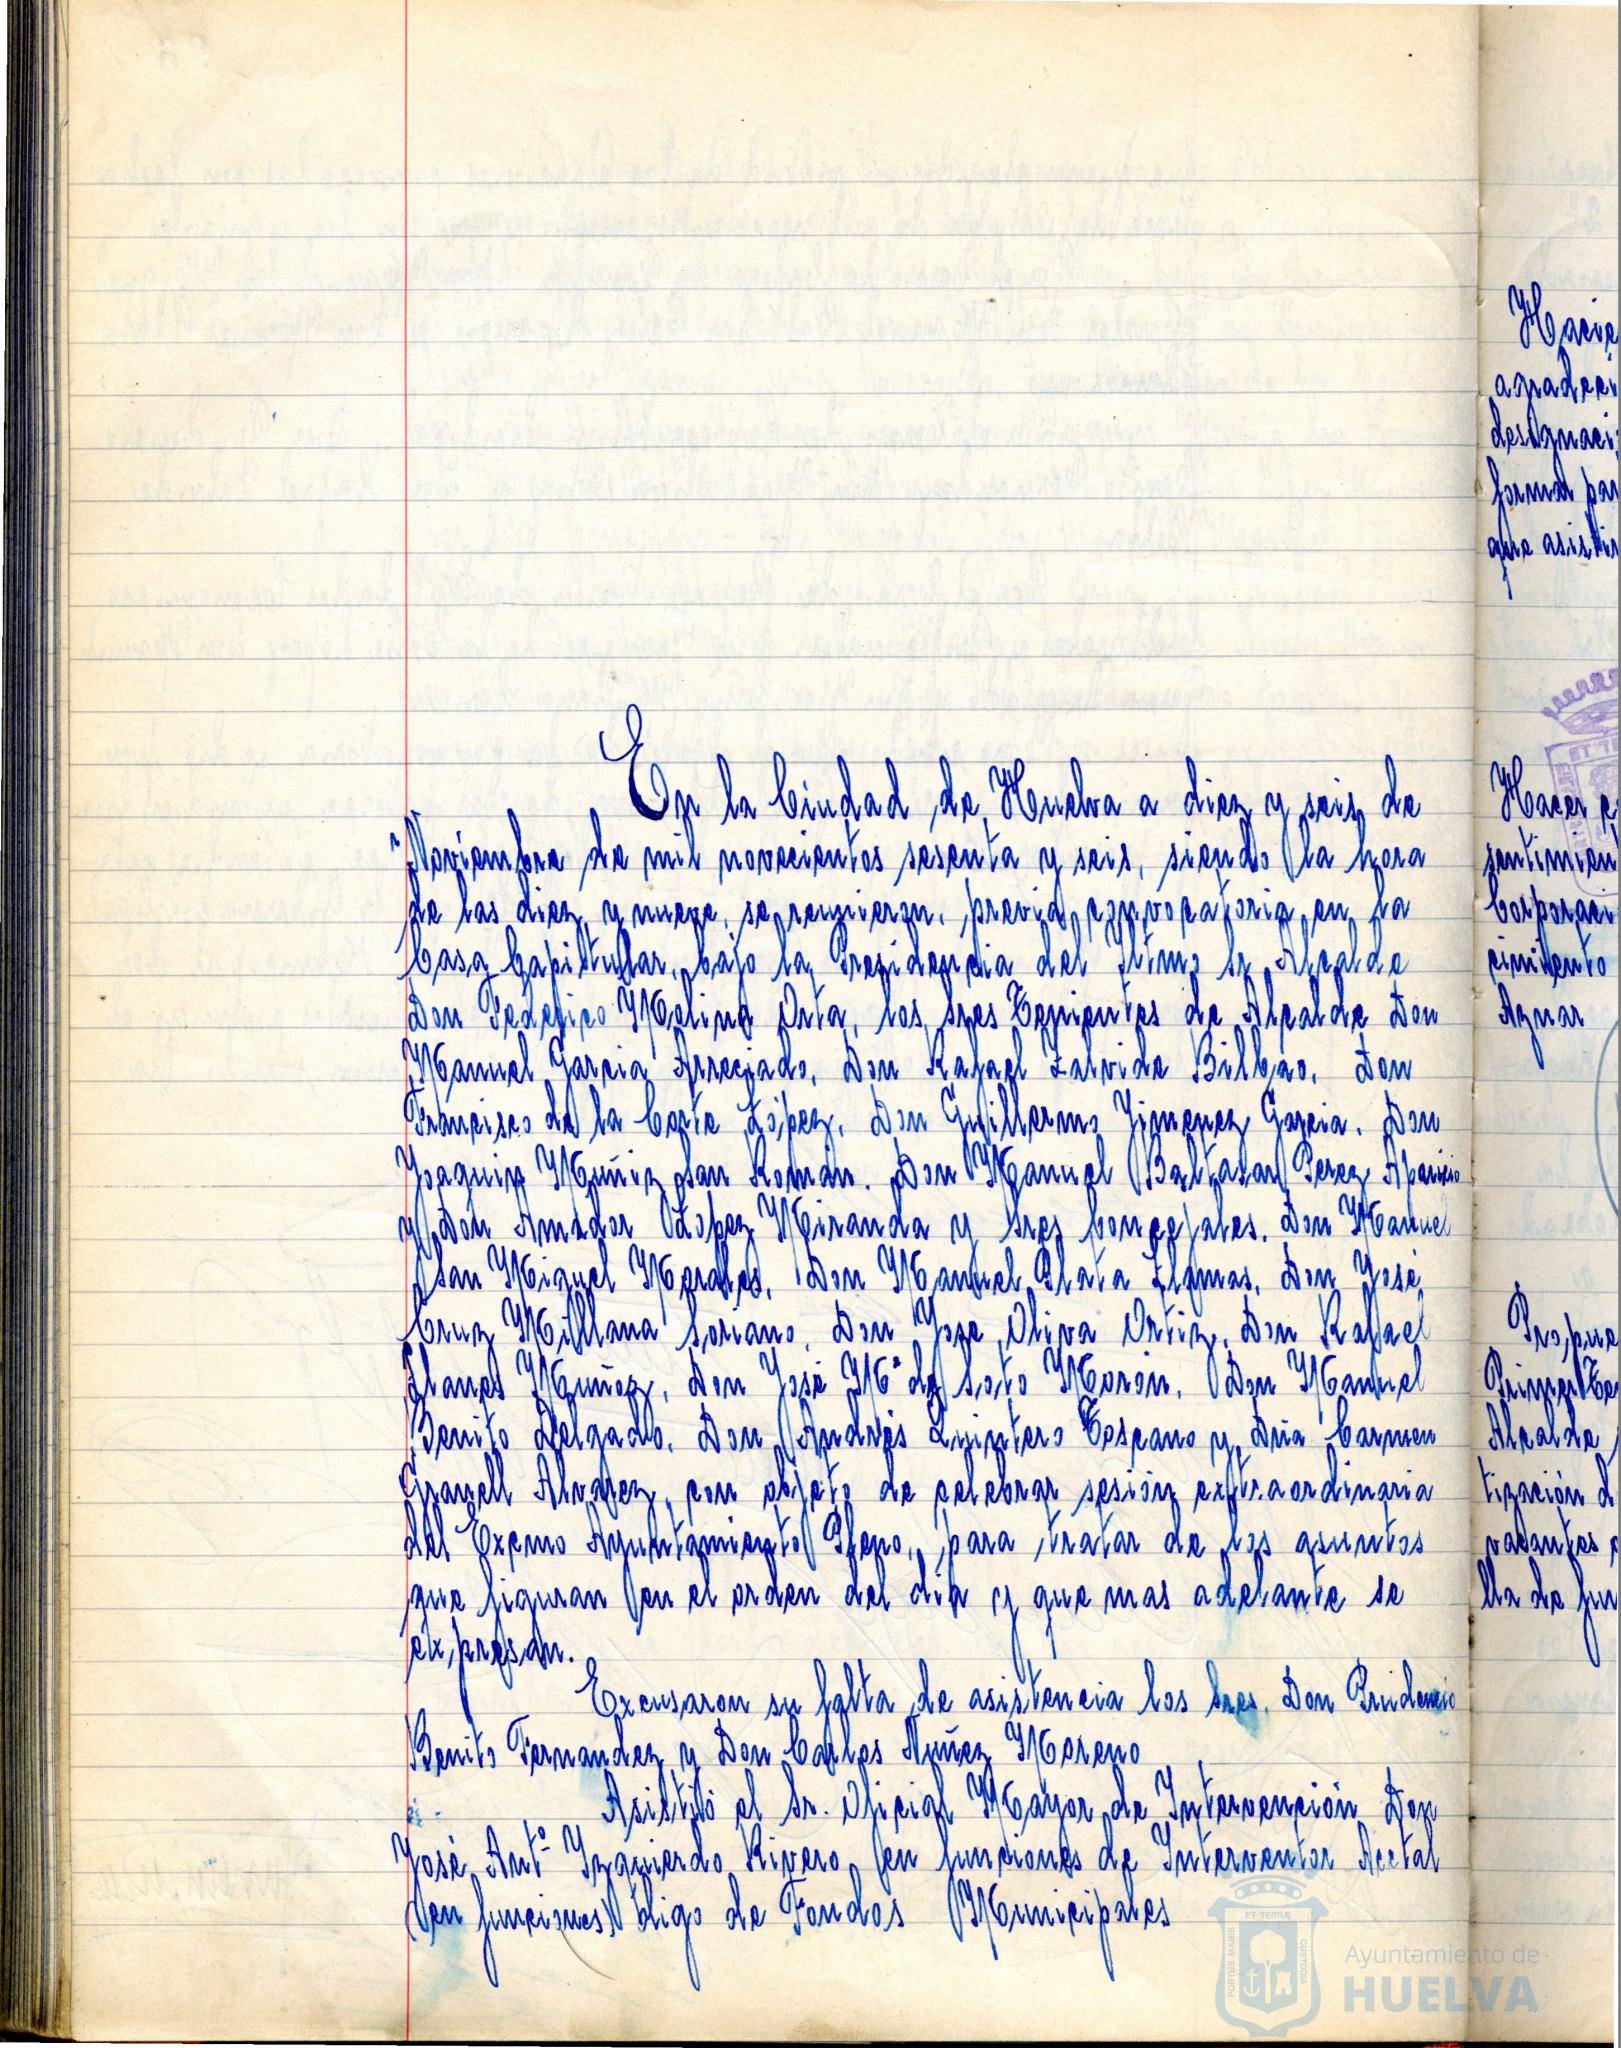 En la Ciudad de Huelva a diez y seis de
Noviembre de mil novecientos sesenta y seis, siendo la hora
de las diez y nueve, se reunieron, previa convocatoria en la
Casa Capitular, bajo la Presidencia del Iltmo Sr Alcalde
Don Federico Molina Orta, los Sres Tenientes de Alcalde Don
Manuel Garcia Arreciado, Don Rafael Zalvide Bilbao, Don
Francisco de la Corte López, Don Guillermo Jimenez Garcia, Don
Joaquin Muñiz San Román. Don Manuel Baltasar Perez Aparicio
y Don Amador López Miranda y Sres Concejales, Don Manuel
San Miguel Morales, Don Manuel Plata Llamas, Don José
Cruz Millana Soriano, Don Jose Oliva Ortiz, Don Rafael
Llanes Muñoz, Don José Mª de Soto Morón, Don Manuel
Benito Delgado, Don Andrés Quintero Toscano y Dña Carmen
Granell Alvarez, con objeto de celebrar sesión extraordinaria
del Excmo Ayuntamiento Pleno, para tratar de los asuntos
que figuran en el orden del dia y que mas adelante se
expresan.
Excusaron su falta de asistencia los Sres. Don Prudencio
Benito Fernandez y Don Carlos Núñez Moreno
Asistió el Sr. Oficial Mayor de Intervención Don
José Antº Izquierdo Rivero en funciones de Interventor Acctal
(en funciones) digo de Fondos Municipales
Hacie
agradeci
designaci
formar par
que asistir
Hacer c
sentimien
Corporaci
cimiento
Aznar
Propue
Primer Te
Alcalde
tización d
vacantes
lla de fun
ET TERRÆ
PORTUS MARIS
CUSTODIA
Ayuntamiento de
HUELVA